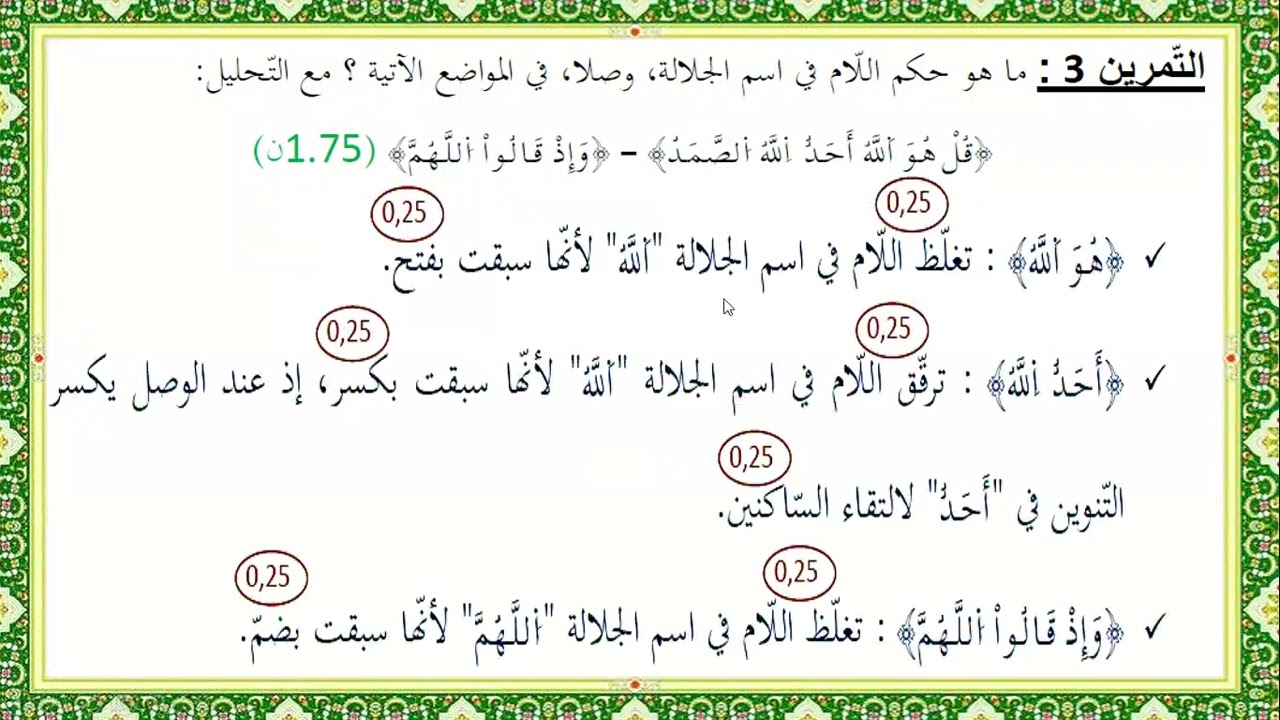 التّمرين 3 : ما هو حكم اللّام في اسم الجلالة، وصلا، في المواضع الآتية ؟ مع التّحليل:
﴿قُلْ هُوَ ٱللَّهُ أَحَدٌ ٱللَّهُ ٱلصَّمَدُ﴾ – ﴿وَإِذْ قَالُواْ ٱللَّهُمَّ﴾ (1.75ن)
0,25 0,25
✓ ﴿هُوَ ٱللَّهُ﴾ : تغلّظ اللّام في اسم الجلالة "ٱللَّهُ" لأنّها سبقت بفتح.
0,25 0,25
✓ ﴿أَحَدٌ ٱللَّهُ﴾ : ترقّق اللّام في اسم الجلالة "ٱللَّهُ" لأنّها سبقت بكسر، إذ عند الوصل يكسر
0,25
التّنوين في "أَحَدٌ" لالتقاء السّاكنين.
0,25 0,25
✓ ﴿وَإِذْ قَالُواْ ٱللَّهُمَّ﴾ : تغلّظ اللّام في اسم الجلالة "ٱللَّهُمَّ" لأنّها سبقت بضمّ.